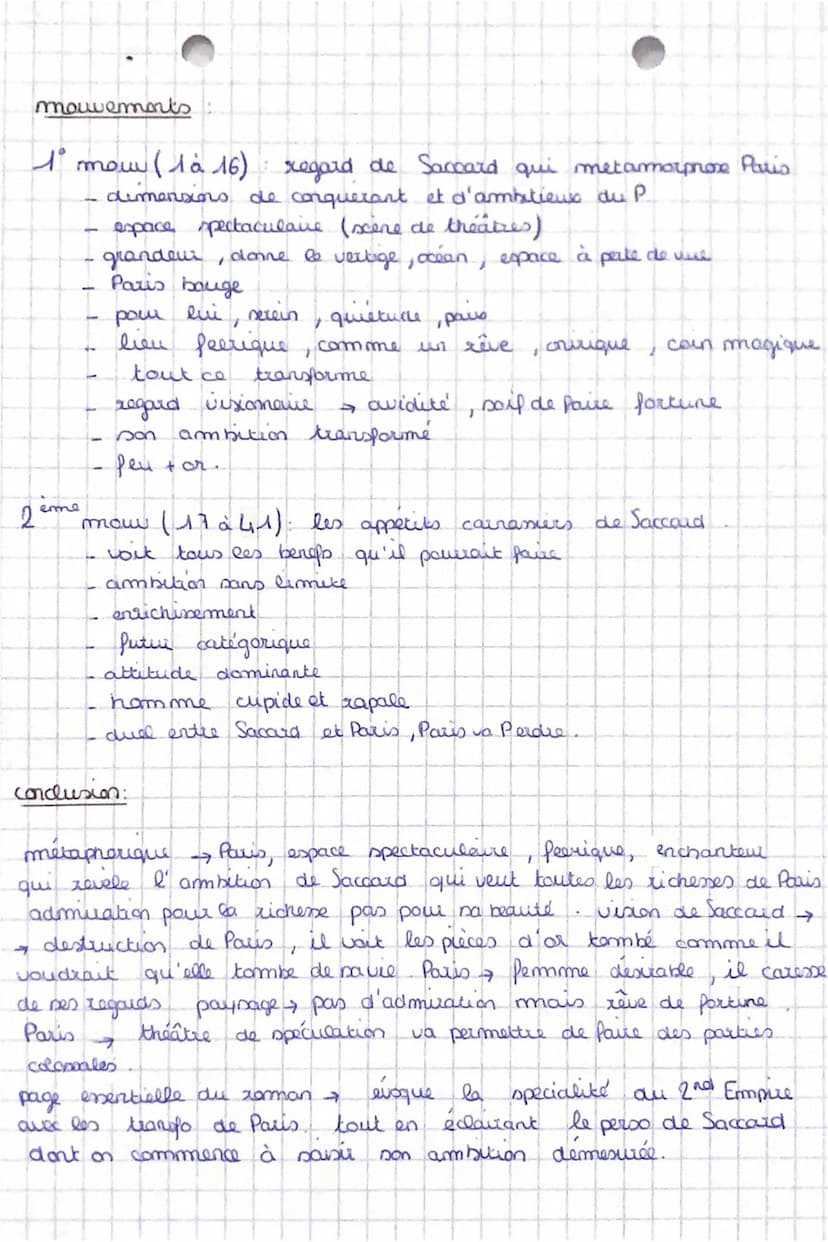 mouvements :
1° mouv (1 à 16) : regard de Saccard qui metamorphose Paris
- dimensions de conquerant et d'ambitieux du P
- espace spectaculaire (scène de théâtres)
- grandeur, donne le vertige, océan, espace à perte de vue
- Paris bouge
- pour lui, serein, quiétude, paix
- lieu feerique, comme un rêve, onirique, coin magique
- tout ce transforme
- regard visionaire → avidité, soif de faire fortune
- son ambition transformé
- feu + or.
2ème mouv (17 à 41) : les appétits carnassiers de Saccard.
- voit tous les benefs qu'il pourrait faire
- ambition sans limite
- enrichissement
- futur catégorique
- attitude dominante
- homme cupide et rapace
- duel entre Sacard et Paris, Paris va Perdre.
conclusion:
métaphorique → Paris, espace spectaculaire, feerique, enchanteur
qui revele l'ambition de Saccard qui veut toutes les richesses de Paris
admiration pour la richesse pas pour sa beauté. vision de Saccard →
→ destruction de Paris, il voit les pièces d'or tombé comme il
voudrait qu'elle tombe de sa vie. Paris → femme désirable, il caresse
de ses regards paysage → pas d'admiration mais rêve de fortune.
Paris → théâtre de spéculation va permettre de faire des parties
colossales.
page essentielle du roman → évoque la specialité du 2nd Empire
avec les transfo de Paris tout en éclairant le perso de Saccard
dont on commence à saisir son ambition démesurée.